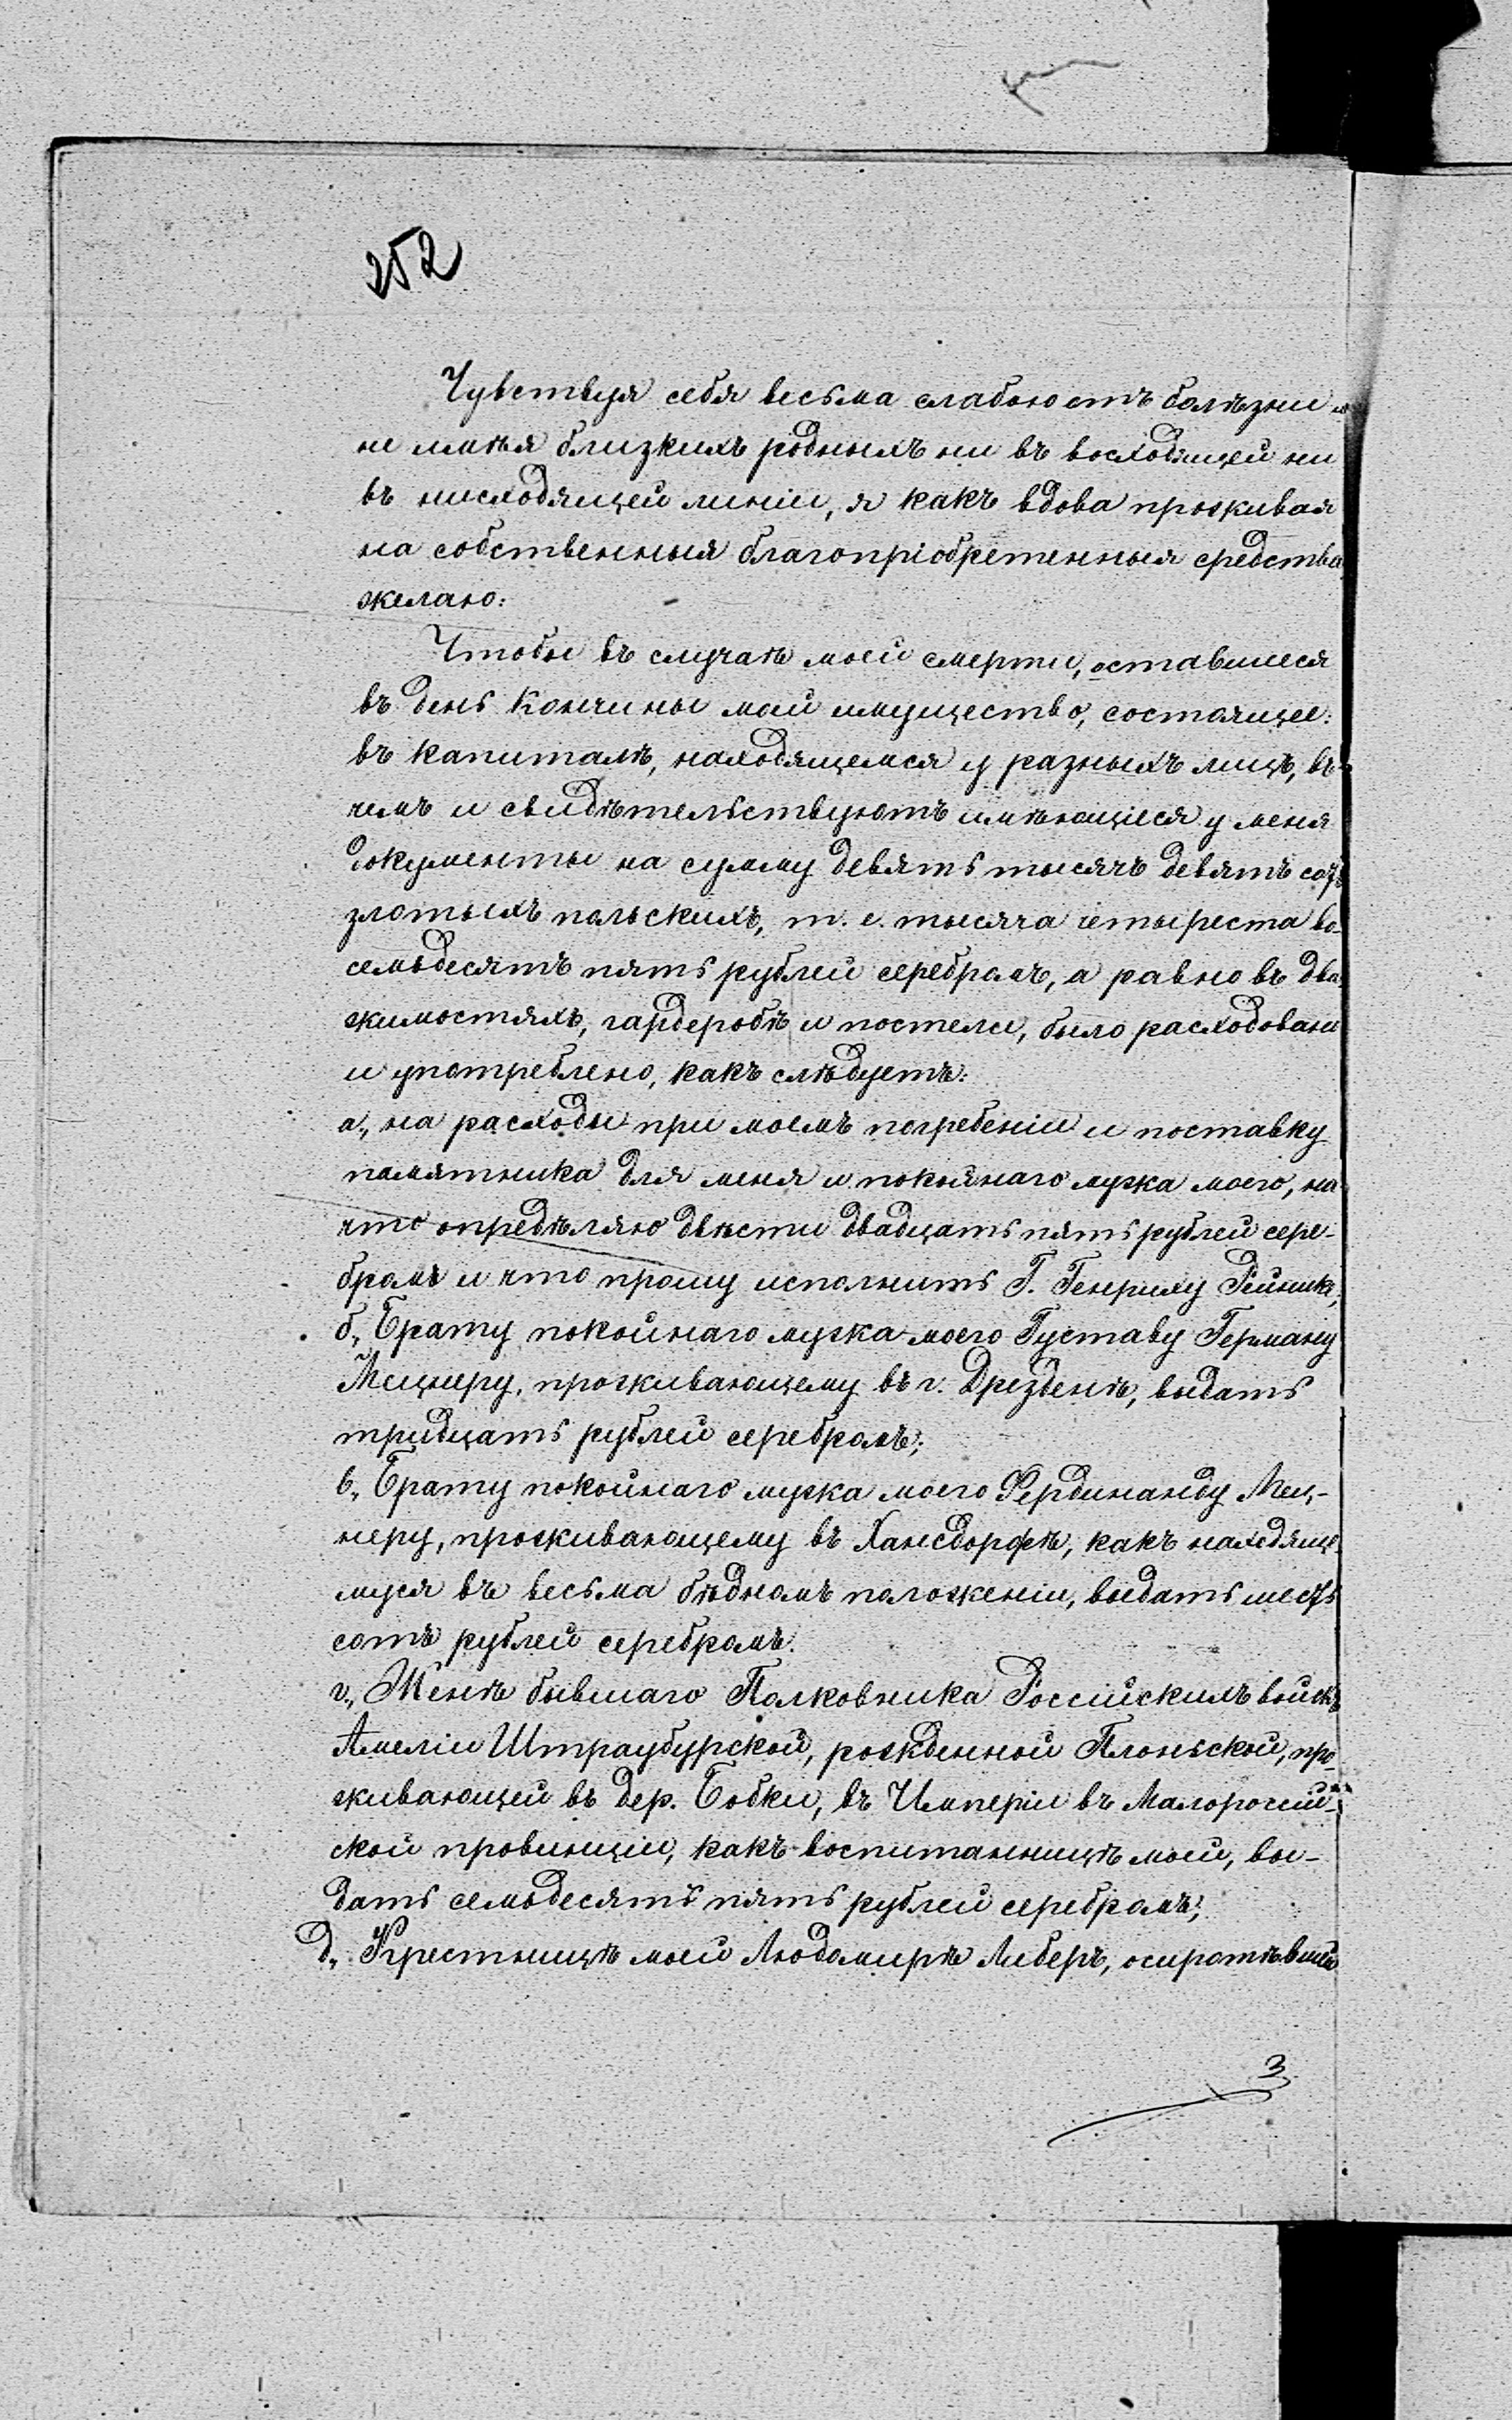 252
Чувствуя себя весьма слабою отъ болѣзни и
не имѣя близкихъ родныхъ ни въ восходящей ни
въ нисходящей линіи, я какъ вдова проживая
на собственныя благопріобретенныя средства
желаю:
Чтобы въ случаѣ моей смерти, оставшееся
въ день кончины моей имущество, состоящее:
въ капиталѣ, находящемся у разныхъ лицъ, въ
чемъ и свидѣтельствуютъ имѣющіеся у меня
документы на сумму девять тысячъ девять сотъ
злотыхъ польскихъ, т. е. тысяча четыреста во-
семьдесятъ пять рублей серебромъ, а равно въ дви-
жимостяхъ, гардеробѣ и постели, было расходовано
и употреблено, какъ слѣдуетъ:
а., на расходы при моемъ погребеніи и поставку
памятника для меня и покойнаго мужа моего, на
что опредѣляю двѣсти двадцать пять рублей сере-
бромъ и что прошу исполнить Г. Генриху Рейнике,
б., Брату покойнаго мужа моего Густаву Герману
Мецнеру, проживающему въ г. Дрезденѣ, выдать
тридцать рублей серебромъ;
в., Брату покойнаго мужа моего Фердинанду Мец-
неру, проживающему въ Хансдорфѣ, какъ находяще-
муся въ весьма бѣдномъ положеніи, выдать шесть
сотъ рублей серебромъ.
г., Женѣ бывшаго Полковника Россійскихъ войскъ
Амеліи Штраубурской, рожденной Плонской, про-
живающей въ дер. Бобки, въ Имперіи въ Малороссій-
ской провинціи, какъ воспитанницѣ моей, вы-
дать семьдесятъ пять рублей серебромъ;
д., Крестницѣ моей Людомирѣ Либеръ, осиротѣвшей
3